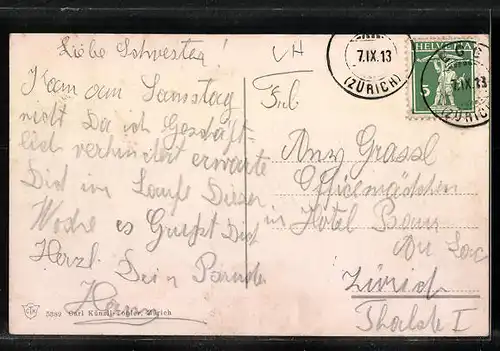 Liebe Schwester!
Kam am Samstag
nicht Da ich Geschäft-
lich verhindert erwarte
Dich im Laufe Dieser
Woche es Grüsst Dich
Herzl. Dein Bruder
VH
7.IX.13
(ZÜRICH)
HELVETIA
5
7.IX.13
(ZÜRICH)
Frl
Anny Grassl
Officemädchen
in Hotel Baur
Au Lac
Zürich
Thalstr I
5382 Carl Künzli-Tobler, Zürich